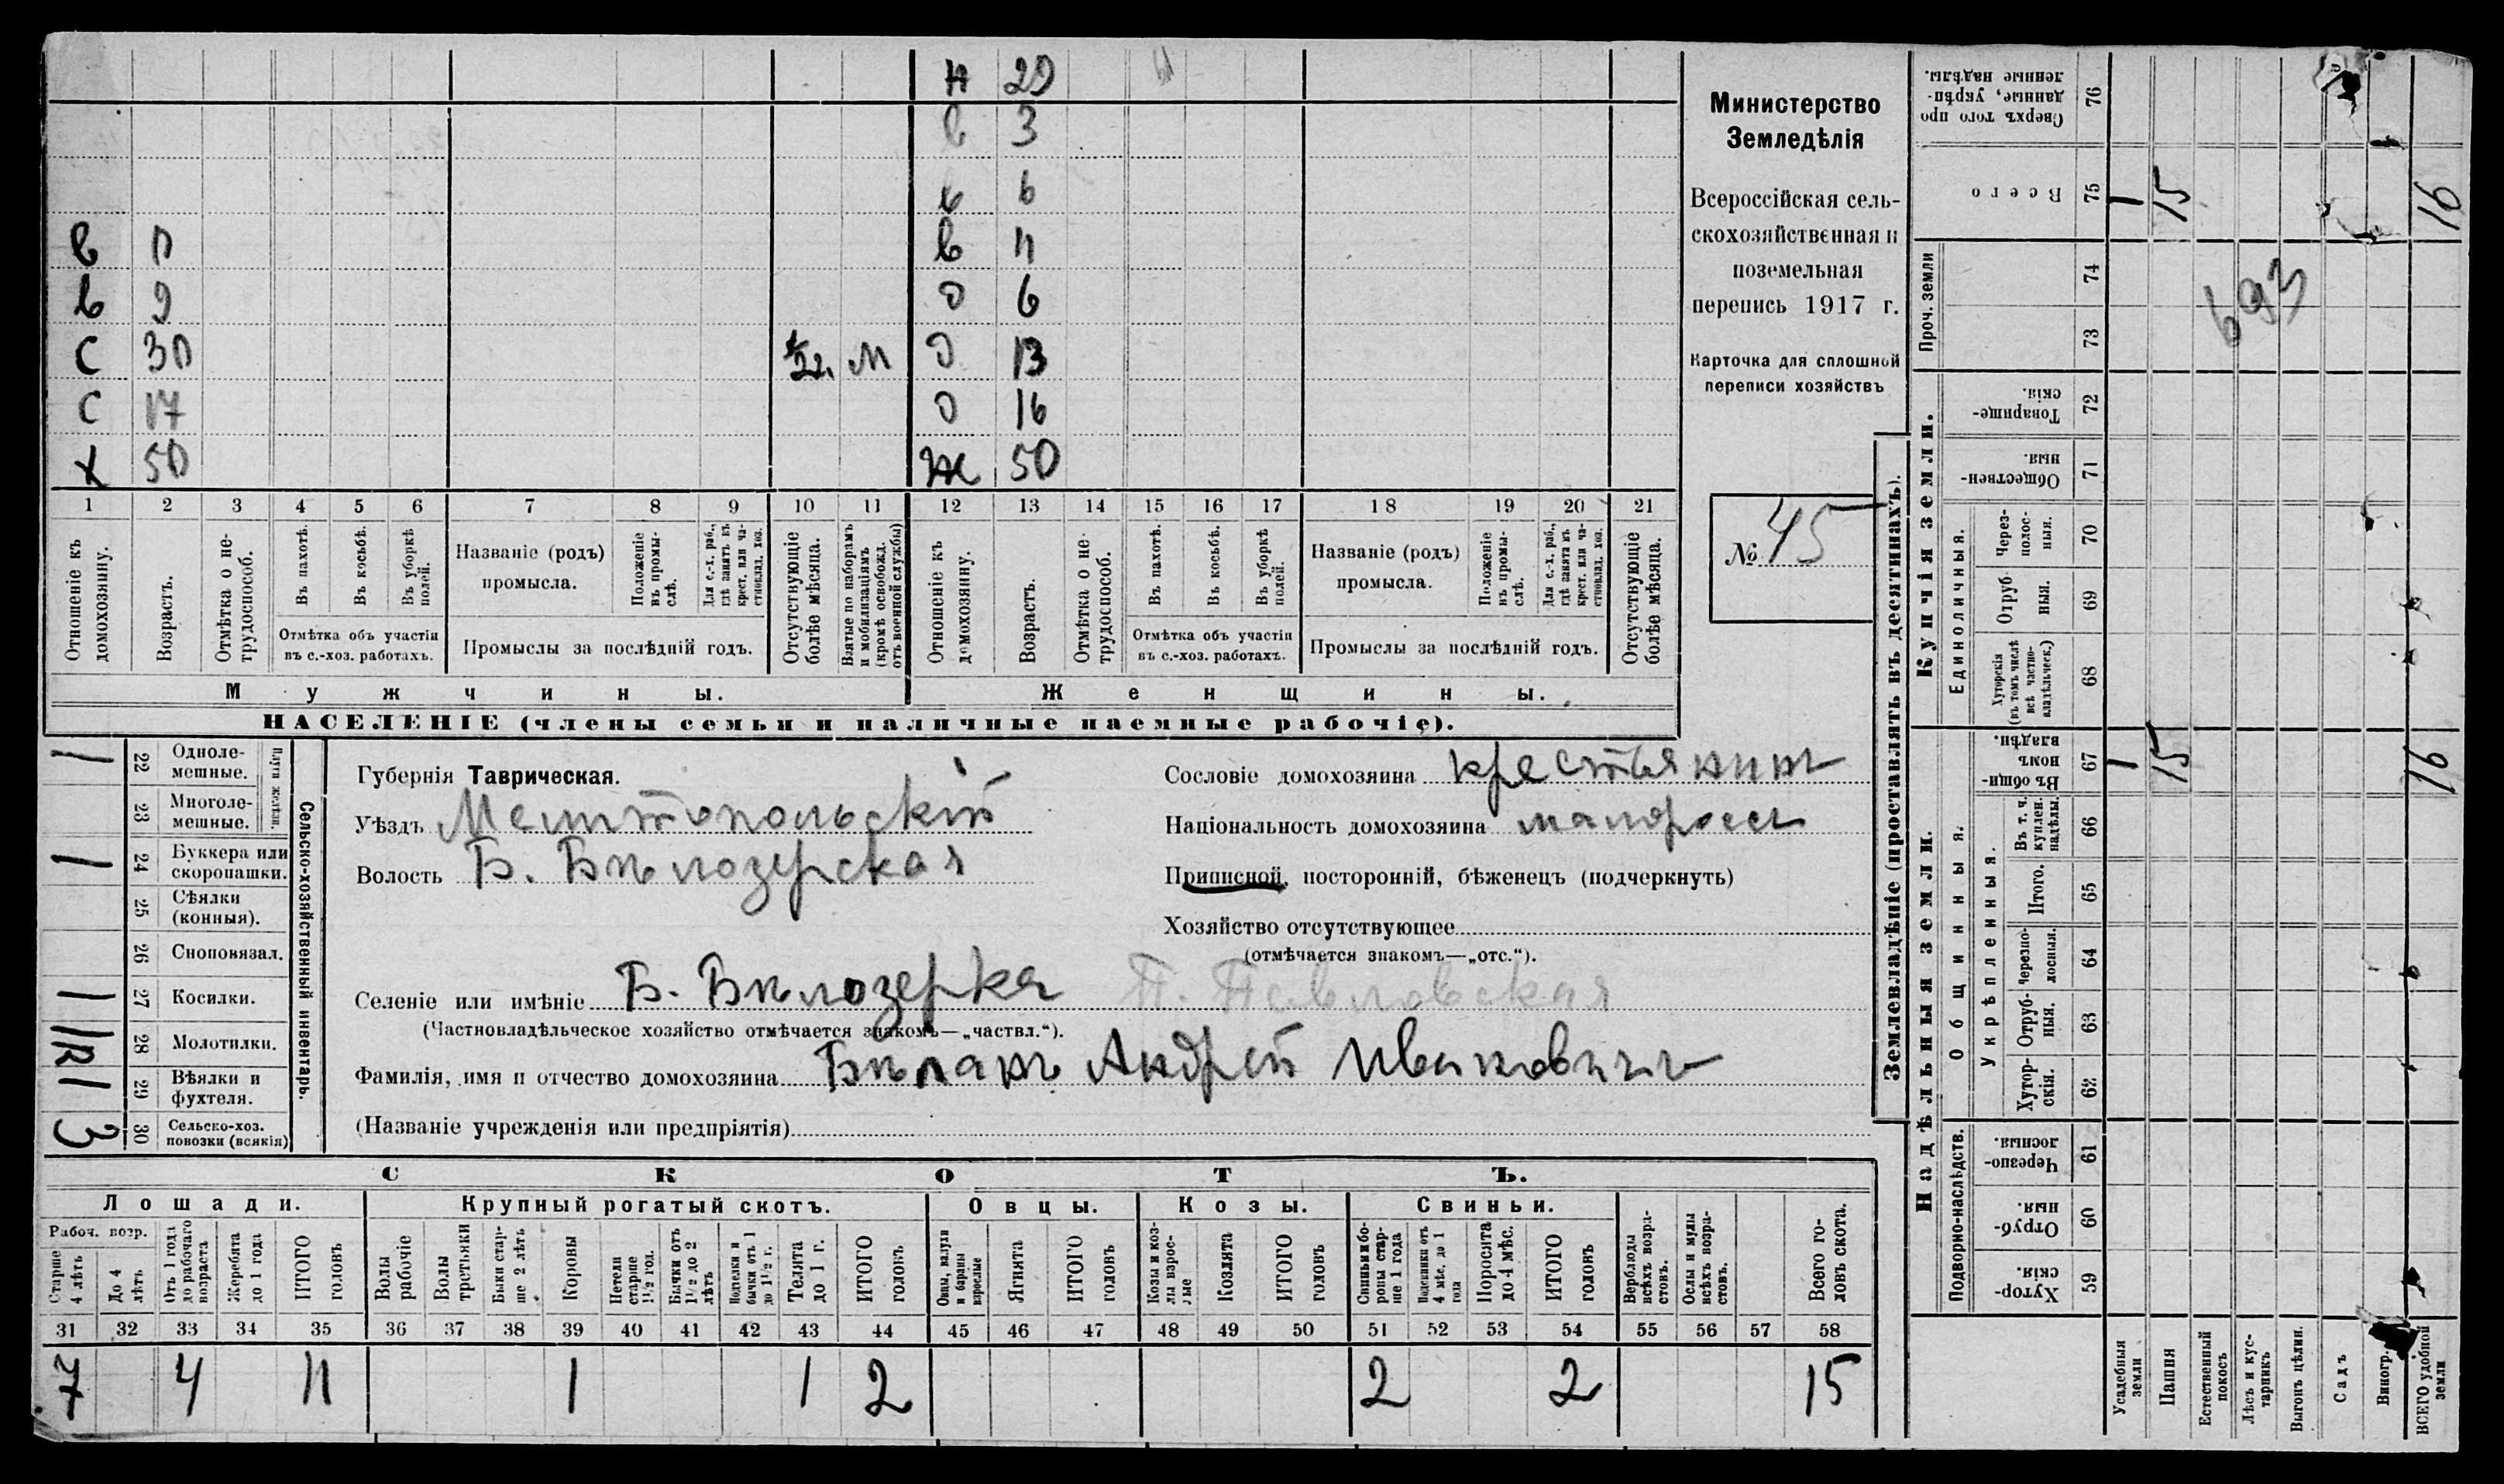 н 29
в 3
в 6
в 11
в 9 в 11
о 6
С 30 1/22. М о 13
С 17 о 16
Х 50 Ж 50
1 2 3 4 5 6 7 8 9 10 11 12 13 14 15 16 17 18 19 20 21
Отношеніе къ домохозяину.
Возрастъ.
Отмѣтка о не-трудоспособ.
Въ пахотѣ.
Въ косьбѣ.
Въ уборкѣ полей.
Отмѣтка объ участіи
въ с.-хоз. работахъ.
Названіе (родъ)
промысла.
Положеніе въ промы-слѣ.
Для с.-х. раб., гдѣ занятъ въ крест. или ча-стновлад. хоз.
Промыслы за послѣдній годъ.
Отсутствующіе болѣе мѣсяца.
Взятые по наборамъ и мобилизаціямъ (кромѣ освобожд. отъ военной службы)
Отношеніе къ домохозяину.
Возрастъ.
Отмѣтка о не-трудоспособ.
Въ пахотѣ.
Въ косьбѣ.
Въ уборкѣ полей.
Отмѣтка объ участіи
въ с.-хоз. работахъ.
Названіе (родъ)
промысла.
Положеніе въ промы-слѣ.
Для с.-х. раб., гдѣ занята въ крест. или ча-стновлад. хоз.
Промыслы за послѣдній годъ.
Отсутствующіе болѣе мѣсяца.
Мужчины.
Женщины.
НАСЕЛЕНІЕ (члены семьи и наличные наемные рабочіе).
Министерство
Земледѣлія
Всероссійская сель-
скохозяйственная и
поземельная
перепись 1917 г.
Карточка для сплошной
переписи хозяйствъ
№ 45
1 22 Одноле-мешные.
23 Многоле-мешные.
Плуги желѣзн.
1 24 Буккера или скоропашки.
25 Сѣялки (конныя).
26 Сноповязал.
1 27 Косилки.
28 Молотилки.
1 29 Вѣялки и фухтеля.
3 30 Сельско-хоз. повозки (всякія)
Сельско-хозяйственный инвентарь.
Губернія Таврическая.
Уѣздъ Мелитопольскій
Волость Б. Бѣлозерская
Сословіе домохозяина крестьянинъ
Національность домохозяина малороссъ
Приписной, посторонній, бѣженецъ (подчеркнуть)
Хозяйство отсутствующее
(отмѣчается знакомъ—„отс.“).
Селеніе или имѣніе Б. Бѣлозерка П. Павловская
(Частновладѣльческое хозяйство отмѣчается знакомъ—„частвл.“).
Фамилія, имя и отчество домохозяина Бѣланъ Андрей Ивановичъ
(Названіе учрежденія или предпріятія)
СКОТЪ.
Лошади. Крупный рогатый скотъ. Овцы. Козы. Свиньи.
Рабоч. возр.
Старше 4 лѣтъ
До 4 лѣтъ
Отъ 1 года до рабочаго возраста
Жеребята до 1 года
ИТОГО головъ
Волы рабочіе
Волы третьяки
Быки стар-ше 2 лѣтъ
Коровы
Нетели старше 1½ год.
Бычки отъ 1½ до 2 лѣтъ
Нетелки и бычки отъ 1 до 1½ г.
Телята до 1 г.
ИТОГО головъ
Овцы, валухи и бараны взрослые
Ягнята
ИТОГО головъ
Козы и коз-лы взрос-лые
Козлята
ИТОГО головъ
Свиньи и бо-ровы стар-ше 1 года
Подсвинки отъ 4 мѣс. до 1 года
Поросята до 4 мѣс.
ИТОГО головъ
Верблюды всѣхъ возра-стовъ.
Ослы и мулы всѣхъ возра-стовъ.
Всего го-ловъ скота.
31 32 33 34 35 36 37 38 39 40 41 42 43 44 45 46 47 48 49 50 51 52 53 54 55 56 57 58
7 4 11 1 1 2 2 2 15
Землевладѣніе (проставлять въ десятинахъ).
Купчія земли.
Надѣльныя земли.
Проч. земли
Единоличныя.
Общинныя.
Укрѣпленныя.
Подворно-наслѣдств.
76 Сверхъ того про данные, укрѣп-ленные надѣлы.
75 Всего 1 15 16
74
73
693
72 Товарище-скія.
71 Обществен-ныя.
70 Через-полос-ныя.
69 Отруб ныя.
68 Хуторскія (въ томъ числѣ всѣ частно-владѣльческ.)
67 Въ общин-номъ владѣн. 1 15 16
66 Въ т. ч. куплен. надѣлы.
65 Итого.
64 Черезпо-лосныя.
63 Отруб-ныя.
62 Хутор-скія.
61 Черезпо-лосныя.
60 Отруб-ныя.
59 Хутор-скія.
Усадебныя земли
Пашня
Естественный покосъ
Лѣсъ и кус-тарникъ
Выгонъ цѣлин.
Садъ
Виногр.
ВСЕГО удобной земли